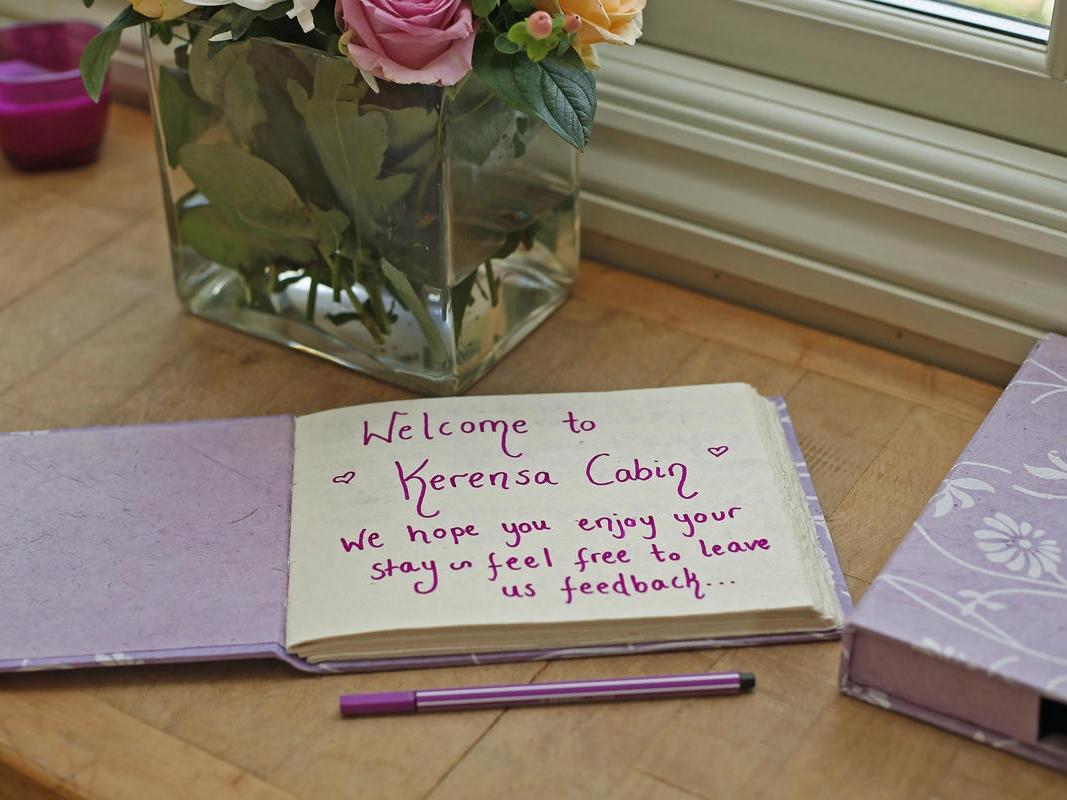 Welcome to
Kerensa Cabin
We hope you enjoy your
stay ~ feel free to leave
us feedback...